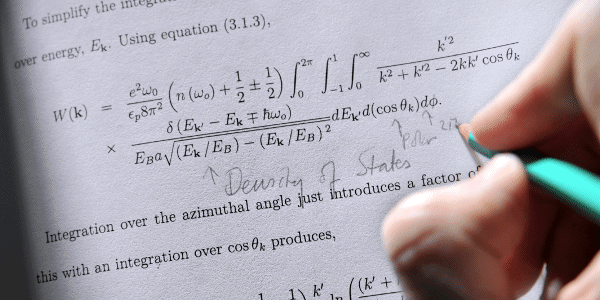 To simplify the
over energy, E_k. Using equation (3.1.3),
W(k) = \frac{e^2 ω_0}{ϵ_p 8π^2} \left( n(ω_o) + \frac{1}{2} ± \frac{1}{2} \right) \int_0^{2π} \int_{-1}^{1} \int_0^{∞} \frac{k'^2}{k^2 + k'^2 − 2kk' cos θ_k}
× \frac{δ(E_{k'} − E_k ∓ ħω_o)}{E_B a \sqrt{(E_k/E_B) − (E_k/E_B)^2}} dE_k' d(cos θ_k) dϕ.
↑ ↑
Polar
↑ Density of States
Integration over the azimuthal angle just introduces a factor
this with an integration over cos θ_k produces,